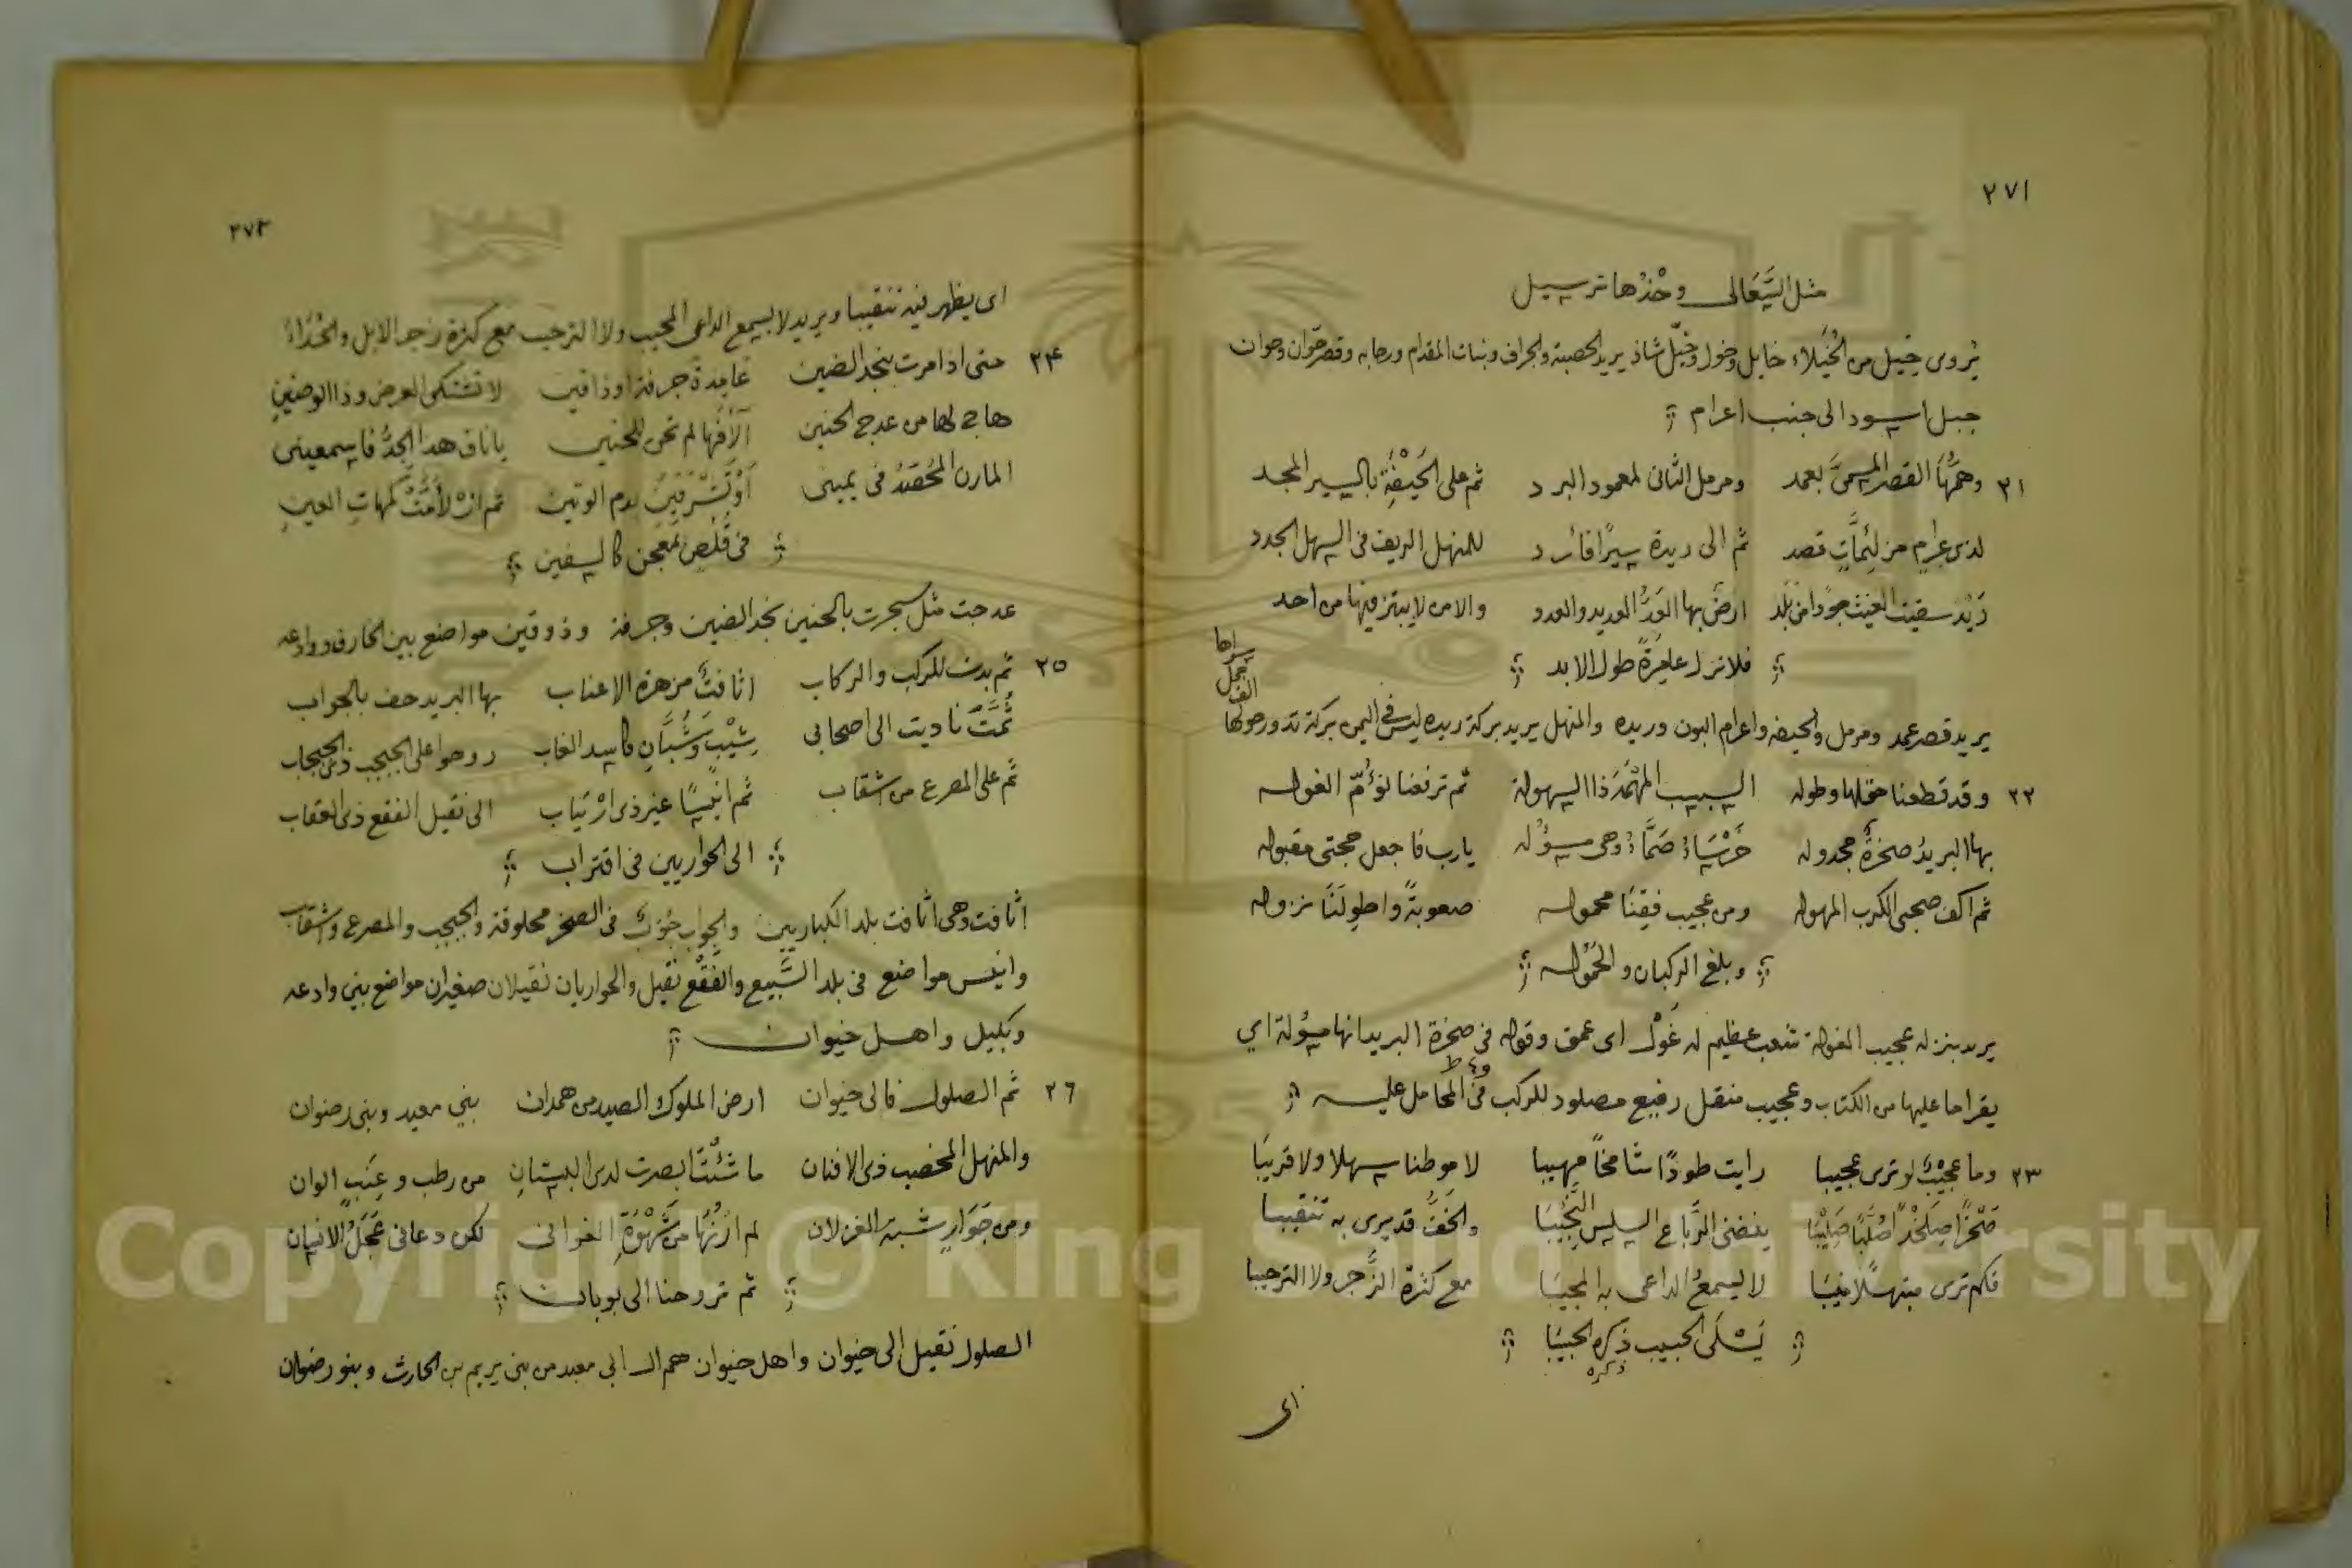 ٢٧١
مثل السَّعَالى وخْدُها ترسيل
يُروى خيل من الخُيَلاء خايل وخول وخيّل شاذ يريد الحصبة والجراف وبنات المقدام ورحابه وقصر حوان وحوان
جبل اسود الى جنب اعرام
٢١ وهمُّها القصر المسمَّى بعمد ومرمل الثانى لمعمود البرد ثم على الحَيْفَةِ بالسير المجد
لذى عرام من لئماتٍ قصد ثم الى ريدة سيرًا فائرد للمنهل الريف فى السهل الجدد
رَيْد سقيت الغيث جودًا من بلد ارضٌ بها العَدُّ العديد والعدد والامن لا يبتز فيها من احد
فلا تزل عامرةً طول الابد
يريد قصر عمد ومرمل والحيفه واعرام البون وريده والمنهل يريد بركة ريده ليس فى اليمن بركة تدور حولها
سواها
٢٢ وقد قطعنا حقلها وطوله السبب المهْمَهَ ذا السهولة ثم ترفعنا نؤُمّ الغوله
بها البريدُ صخرةٌ مجدوله خَرْسَاءُ صَمَّاءُ وهى مسؤله يارب فاجعل حجتى مقبوله
ثم اكف صحبى الكرب المهوله ومن عجيب فقنا محموله صعوبةً واطولَنَا نزوله
وبلغ الركبان والحَمُوله
يريد بنزله عجيب الغولة شعب عظيم له غَوْل اى عمق وقوله فى صخرة البريد انها مسؤلة اى
يقرا ما عليها من الكتاب وعجيب منقل رفيع مصلود للركب فى المحامل عليه
٢٣ وما عجيْبٌ لو ترى عجيبا رايت طودًا شامخًا مهيبا لا موطنا سهلا ولا قريبَا
صَخْرًا صِلَخْدًا صُلَّبًا صَلِيْبًا يفضى الرَّبَاع السلس النَّجِيْبَا والخفُّ قد يرى به تنقيبا
فكم ترى مبتهلًا منيبَا لا يسمعُ الداعى به المجيبَا مع كثرة الزَّجر ولا الترحيبا
يَسْلَى الحبيب ذكره الحبيبَا
ذكره
اى
٢٧٢
اى يظهر فيه تنقيبا ويريد لا يسمع الداعى المجيب ولا الترحيب مع كثرة زجر الابل والحُدَاء
٢٤ حتى اذا مرت بنجد الضين عامدة جرفة او ذا قين لا تشتكى العرض وذا الوضينِ
هاج لها من عدج الحنين آلافَها لم تحن للحنين يا ناق هدا الجدُّ فاسمعينى
المارن المُحْصَدُ فى يمينى اوْتَشْرَقِيْنَ بدم الوتين ثم انْ لأَمَتْ كمهاتِ العينِ
فى قُلُصٍ تمعجن كالسفين
عدجت مثل سجرت بالحنين نجد الضين وجرفة وذو قين مواضع بين الخارف ووادعه
٢٥ ثم بدت للركب والركاب اثافتٌ مزهرة الاعناب بها البريد حف بالجواب
ثُمَّتَ ناديت الى اصحابى شِيْبٍ وَشُبَّانٍ كاسد الغاب روحوا على الجبجب ذى الجبجاب
ثم على المصرع من اشقاب ثم انيْسًا غير ذى ارْتياب الى نقيل الفقع ذى العقاب
الى الحواريين فى اقتراب
اثافت وهى اثافت بلد الكباريين والجواب جُوَبٌ فى الصخر محلوقة والجبجب والمصرع واشقاب
وانيس مواضع فى بلد السَّبيع والفَقْع نقيل والحواريان نقيلان صغيران مواضع بنى وادعه
وبكيل واهل خيوان
٢٦ ثم الصلول فالى خيوان ارض الملوك الصيد من همدان بنى معيد وبنى رضوان
والمنهل المخصب ذى الافنان ما شئْتَ ابصرت لدى البستانِ من رطب وعِنَبٍ الوان
ومن جَوَارٍ شبه الغزلان لم ازنُها من شهْوَةِ الغوانى لكن دعانى عَجَلُ الانسان
ثم تروحنا الى بوبان
الصلول نقيل الى خيوان واهل خيوان هم ال ابى معيد من بنى يريم بن الحارث وبنو رضوان
Copyright © King Saud University
1957